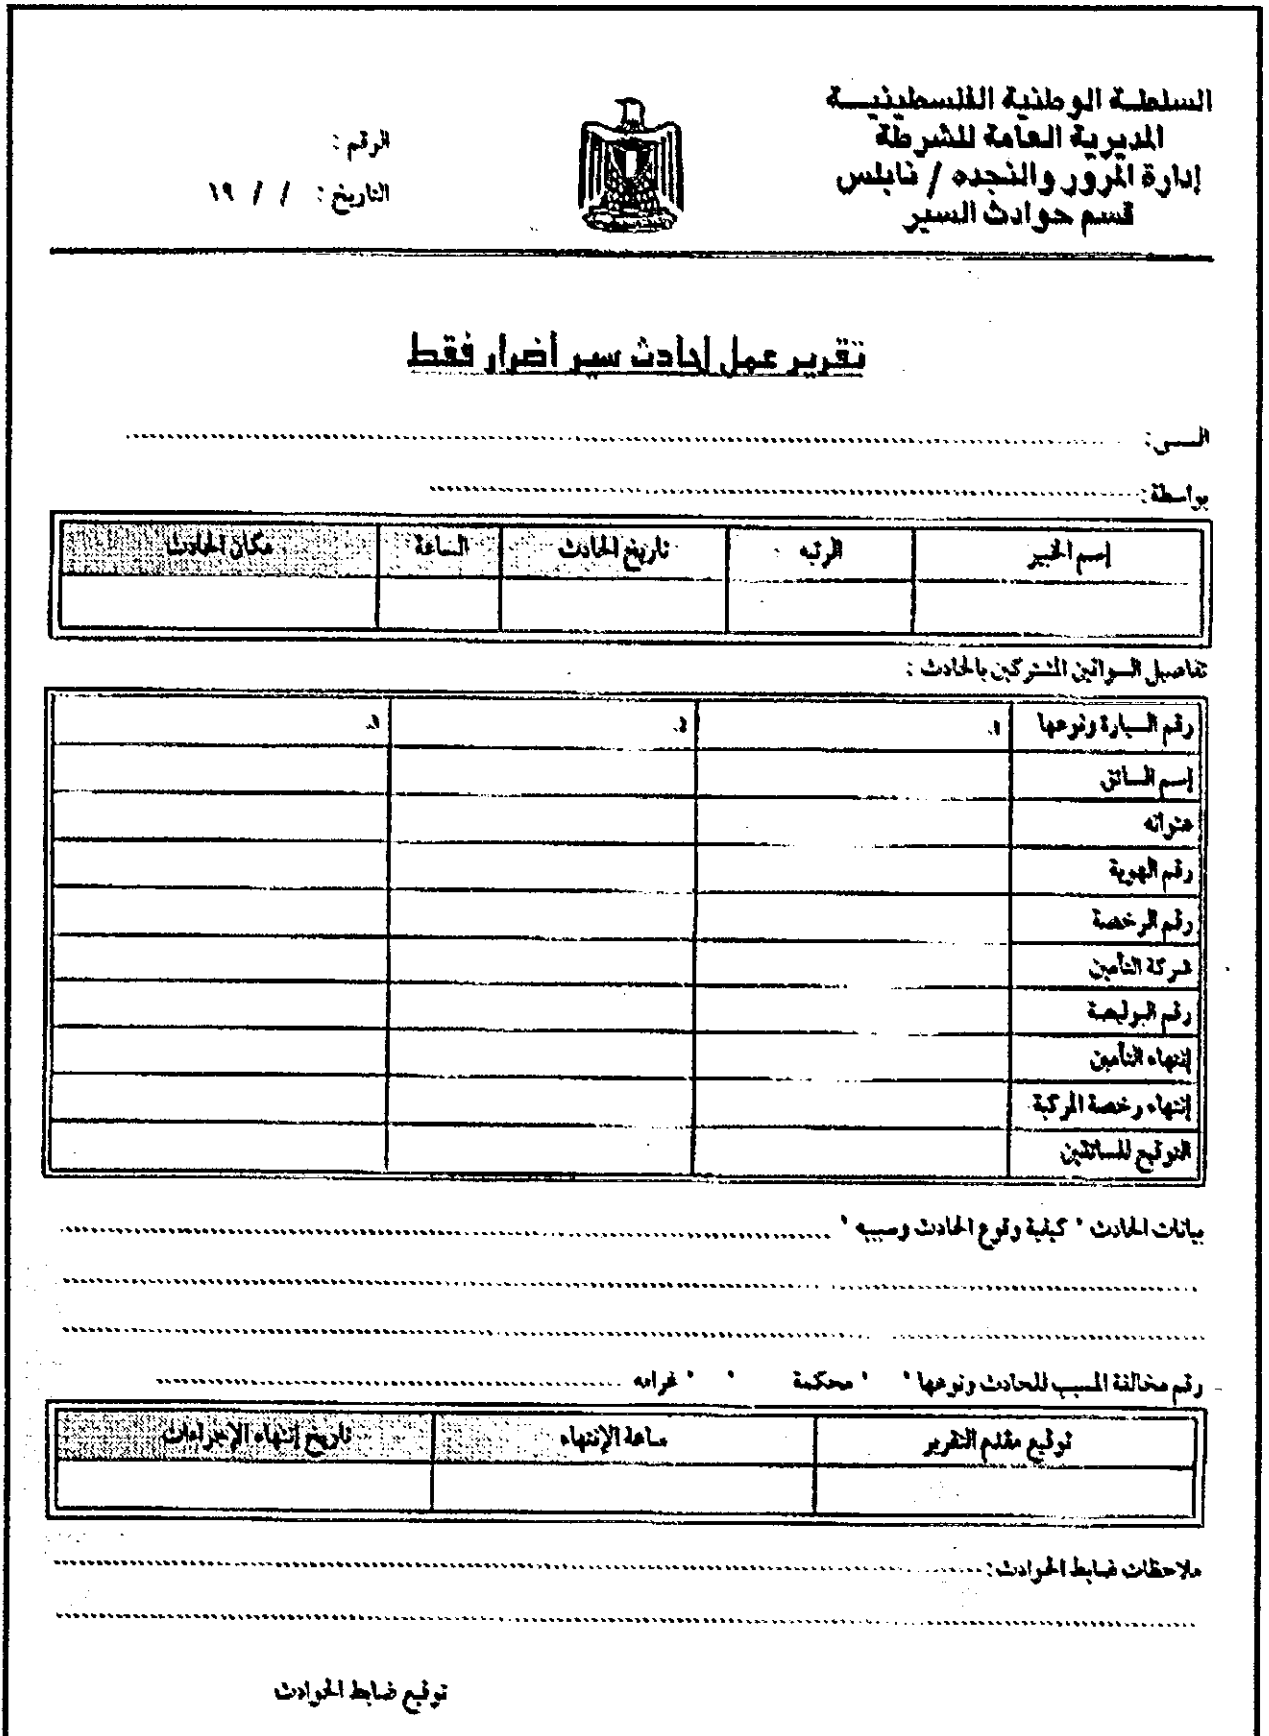 السلطة الوطنية الفلسطينية
المديرية العامة للشرطة
إدارة المرور والنجده / نابلس
قسم حوادث السير
الرقم :
التاريخ : / / ١٩
تقرير عمل لحادث سير أضرار فقط
بواسطة :
إسم الخبير الرتبه تاريخ الحادث الساعة مكان الحادث
تفاصيل السواقين المشتركين بالحادث :
رقم السيارة ونوعها
إسم السائق
عنوانه
رقم الهوية
رقم الرخصة
شركة التأمين
رقم البوليصة
إنتهاء التأمين
إنتهاء رخصة المركبة
التوقيع للسائقين
بيانات الحادث " كيفية وقوع الحادث وسببه "
رقم مخالفة المسبب للحادث ونوعها " " محكمة " " غرامه
توقيع مقدم التقرير ساعة الإنتهاء تاريخ إنتهاء الإجراءات
ملاحظات ضابط الحوادث :
توقيع ضابط الحوادث